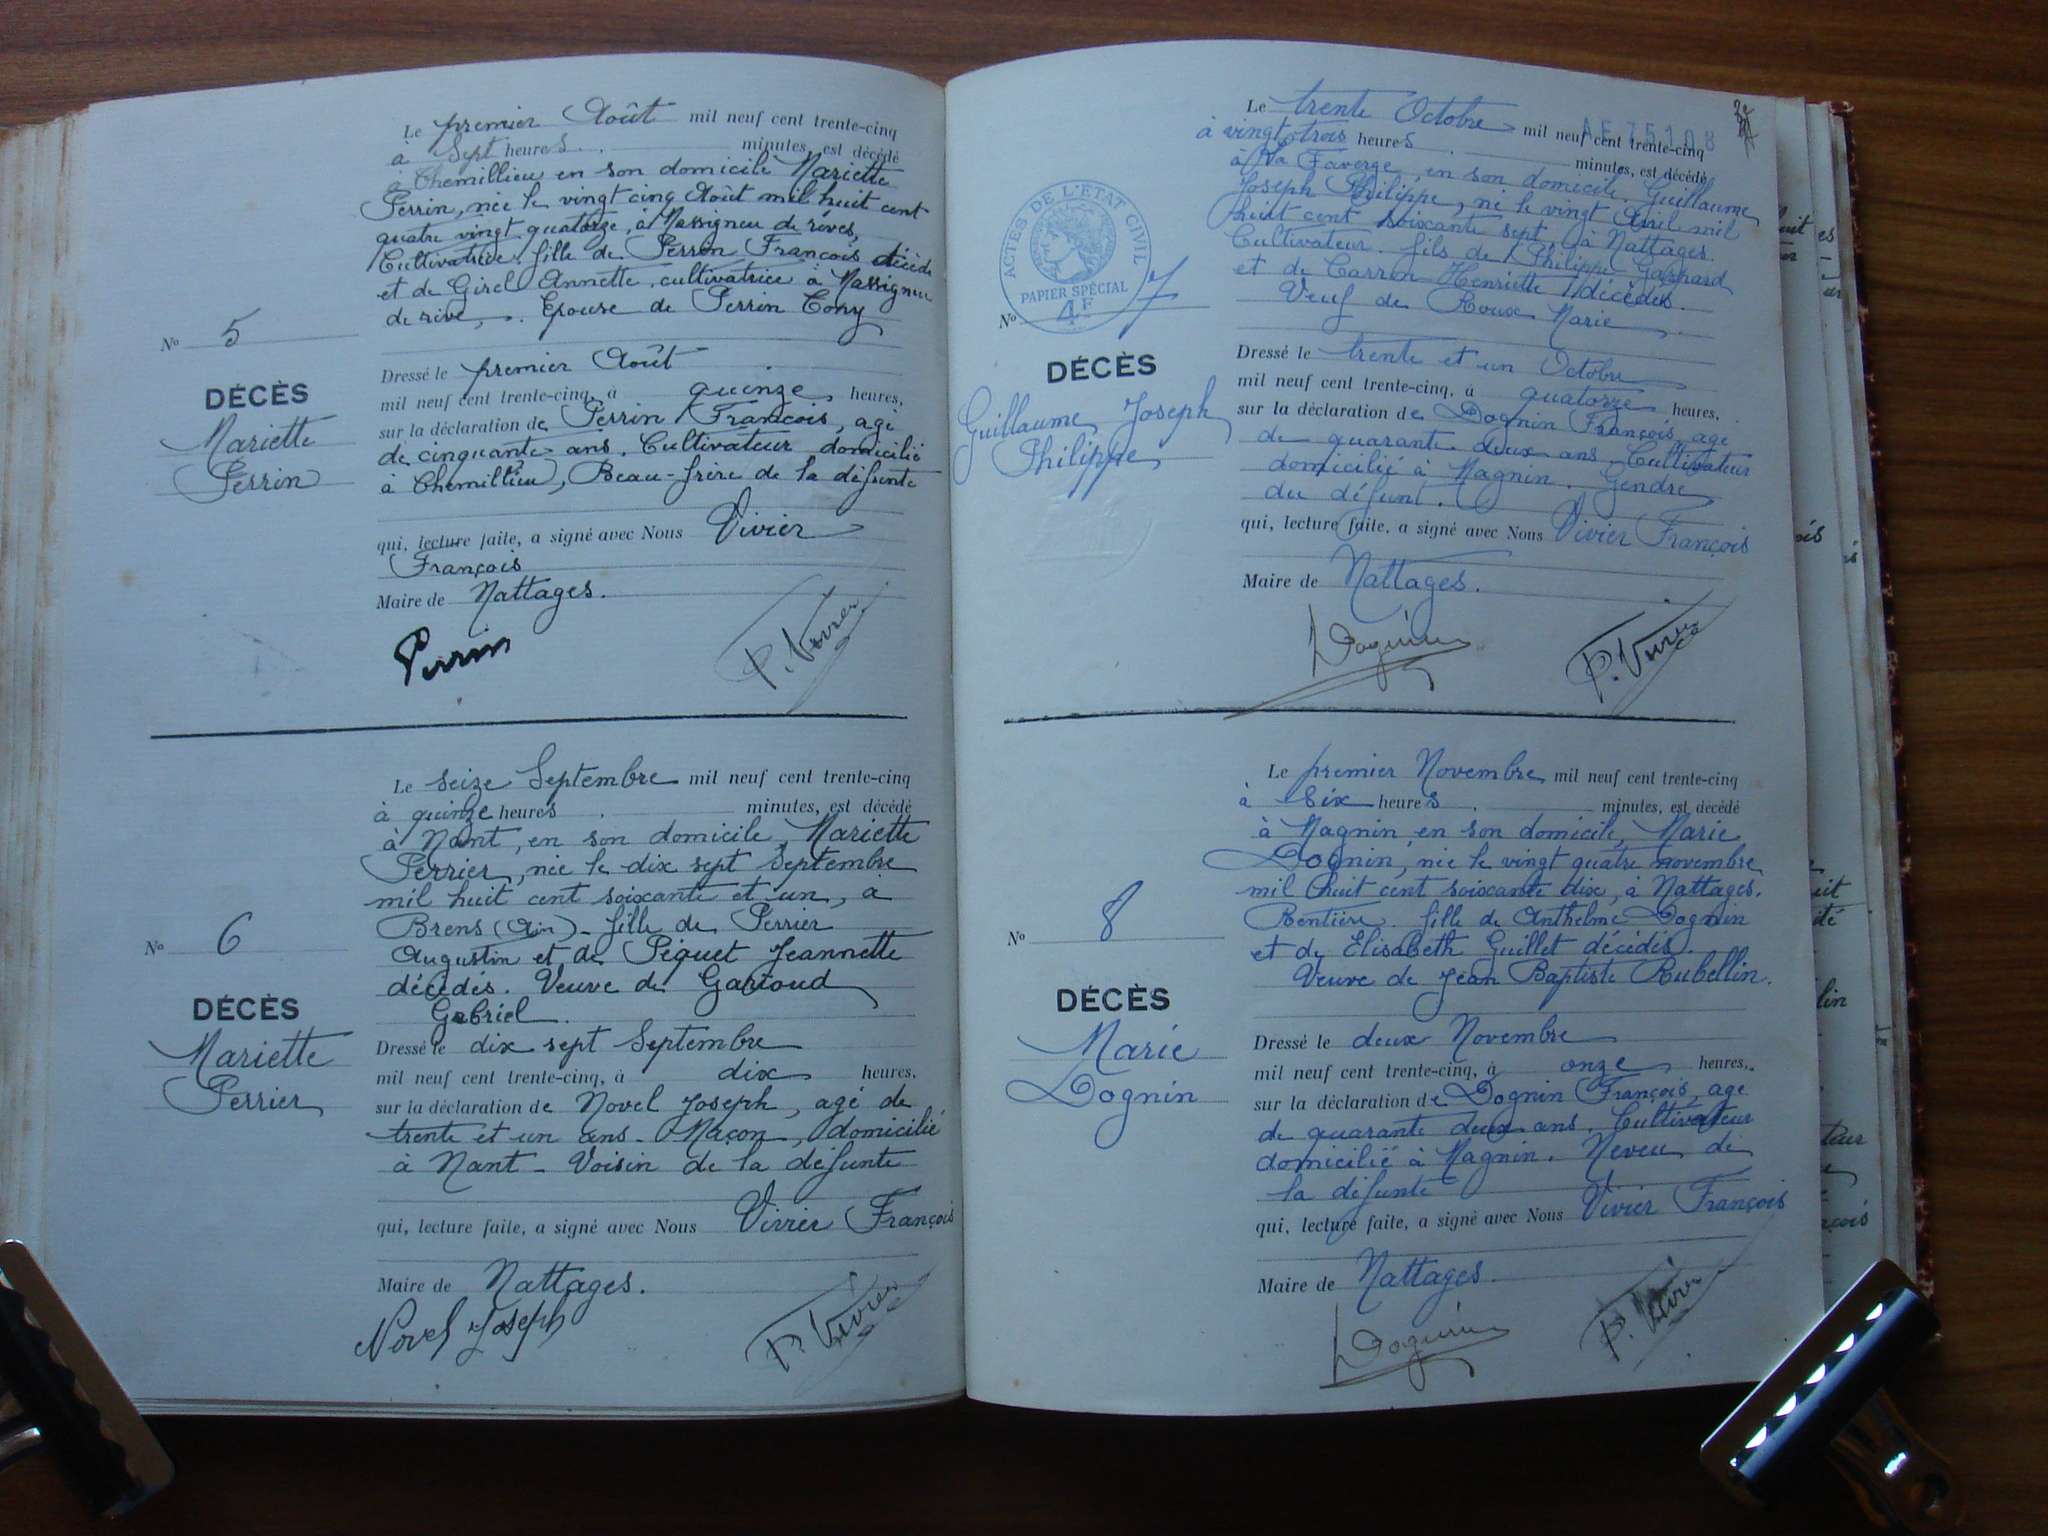 Le premier Août mil neuf cent trente-cinq
à Sept heures . minutes, est décédé
à Chemillieu en son domicile Mariette
Perrin, née le vingt cinq Août mil huit cent
quatre vingt quatorze, à Massigneu de rives,
Cultivatrice fille de Perrin François décédé
et de Girel Annette, cultivatrice à Massigneu
de rive, . Epouse de Perrin Tony
N° 5
DÉCÈS
Mariette
Perrin
Dressé le premier Août
mil neuf cent trente-cinq, à quinze heures,
sur la déclaration de Perrin François, agé
de cinquante ans. Cultivateur domicilié
à Chemillieu, Beau-frère de la défunte
qui, lecture faite, a signé avec Nous Vivier
François
Maire de Nattages.
Perrin
Vivier
Le seize Septembre mil neuf cent trente-cinq
à quinze heures . minutes, est décédé
à Nant, en son domicile, Mariette
Perrier, née le dix sept Septembre
mil huit cent soixante et un, à
Brens (Ain) - fille de Perrier
Augustin et de Péquet Jeannette
décédés. Veuve de Gartoud
Gabriel.
N° 6
DÉCÈS
Mariette
Perrier
Dressé le dix sept Septembre
mil neuf cent trente-cinq, à dix heures.
sur la déclaration de Novel Joseph, agé de
trente et un ans - Maçon, domicilié
à Nant - Voisin de la défunte
qui, lecture faite, a signé avec Nous Vivier François
Maire de Nattages.
Novel Joseph
Vivier
AE 75108
Le trente Octobre mil neuf cent trente-cinq
à vingt trois heures . minutes, est décédé
à La Faverge, en son domicile. Guillaume
Joseph Philippe, né le vingt Avril mil
huit cent soixante sept, à Nattages.
Cultivateur. fils de Philippe Gaspard
et de Carron Henriette décédés.
Veuf de Roux Marie
ACTES DE L'ETAT CIVIL
PAPIER SPÉCIAL
4F
N° 7
DÉCÈS
Guillaume Joseph
Philippe
Dressé le trente et un Octobre
mil neuf cent trente-cinq, à quatorze heures,
sur la déclaration de Dognin François, agé
de quarante deux ans. Cultivateur
domicilié à Magnin. Gendre
du défunt.
qui, lecture faite, a signé avec Nous Vivier François
Maire de Nattages.
Dognin
Vivier
Le premier Novembre mil neuf cent trente-cinq
à Six heures . minutes, est décédé
à Magnin, en son domicile, Marie
Dognin, née le vingt quatre novembre
mil huit cent soixante dix, à Nattages.
Rentière. fille de Anthelme Dognin
et de Elisabeth Guillet décédés.
Veuve de Jean Baptiste Rubellin.
N° 8
DÉCÈS
Marie
Dognin
Dressé le deux Novembre
mil neuf cent trente-cinq, à onze heures,
sur la déclaration de Dognin François, age
de quarante deux ans. Cultivateur
domicilié à Magnin. Neveu de
la défunte
qui, lecture faite, a signé avec Nous Vivier François
Maire de Nattages.
Dognin
Vivier